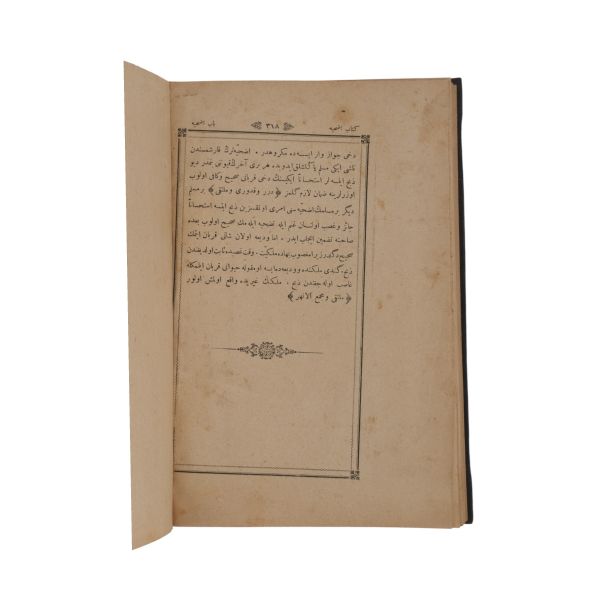 كتاب اضحيه ٣٦٨ باب اضحيه
دخى جواز وار ايسه ده مكروهدر . اضحيه‌لرك قارشمسندن
ناشى ايكى مسلم ياكلشلق ايدوبده هر برى آخرك قيوننى كندر ديو
ذبح ايلسه‌لر استحساناً ايكيسنك دخى قربانى صحيح وكافى اولوب
اوزرلرينه ضمان لازم كلمز ﴿ درر وقدورى وملتقى ﴾ بر مسلم
ديكر بر مسلمك اضحيه‌سنى امرى اولقسزين ذبح ايلسه استحساناً
جائز وغصب اولنان غنم ايله تضحيه ايله‌مك صحيح اولوب بعده
صاحبنه تضمين ايجاب ايدر . اما وديعه اولان شاتى قربان ايتمك
صحيح دكلدر زيرا مغصوب بهاده ملكيت . وقت غصبده ثابت اولديغندن
ذبح كندى ملكنده ووديعه‌ده ايسه او مقوله حيوانى قربان ايتمكله
غاصب اوله‌جغندن ذبح . ملكك غيريده واقع اولمش اولور
﴿ ملتقى ومجمع الانهر ﴾